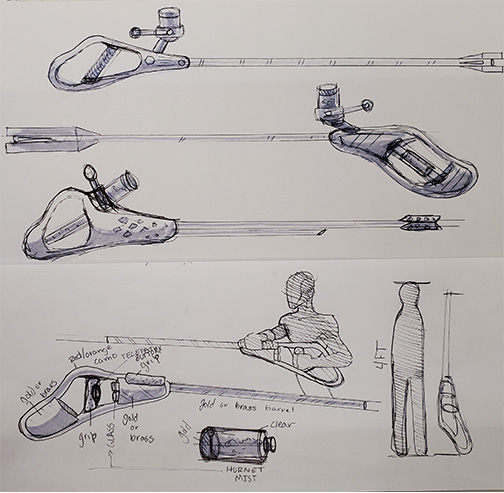 Red/orange
camo
grip
gold or
brass
grip
GLASS
gold
or
brass
gold or brass barrel
gold
clear
HORNET
MIST
4FT